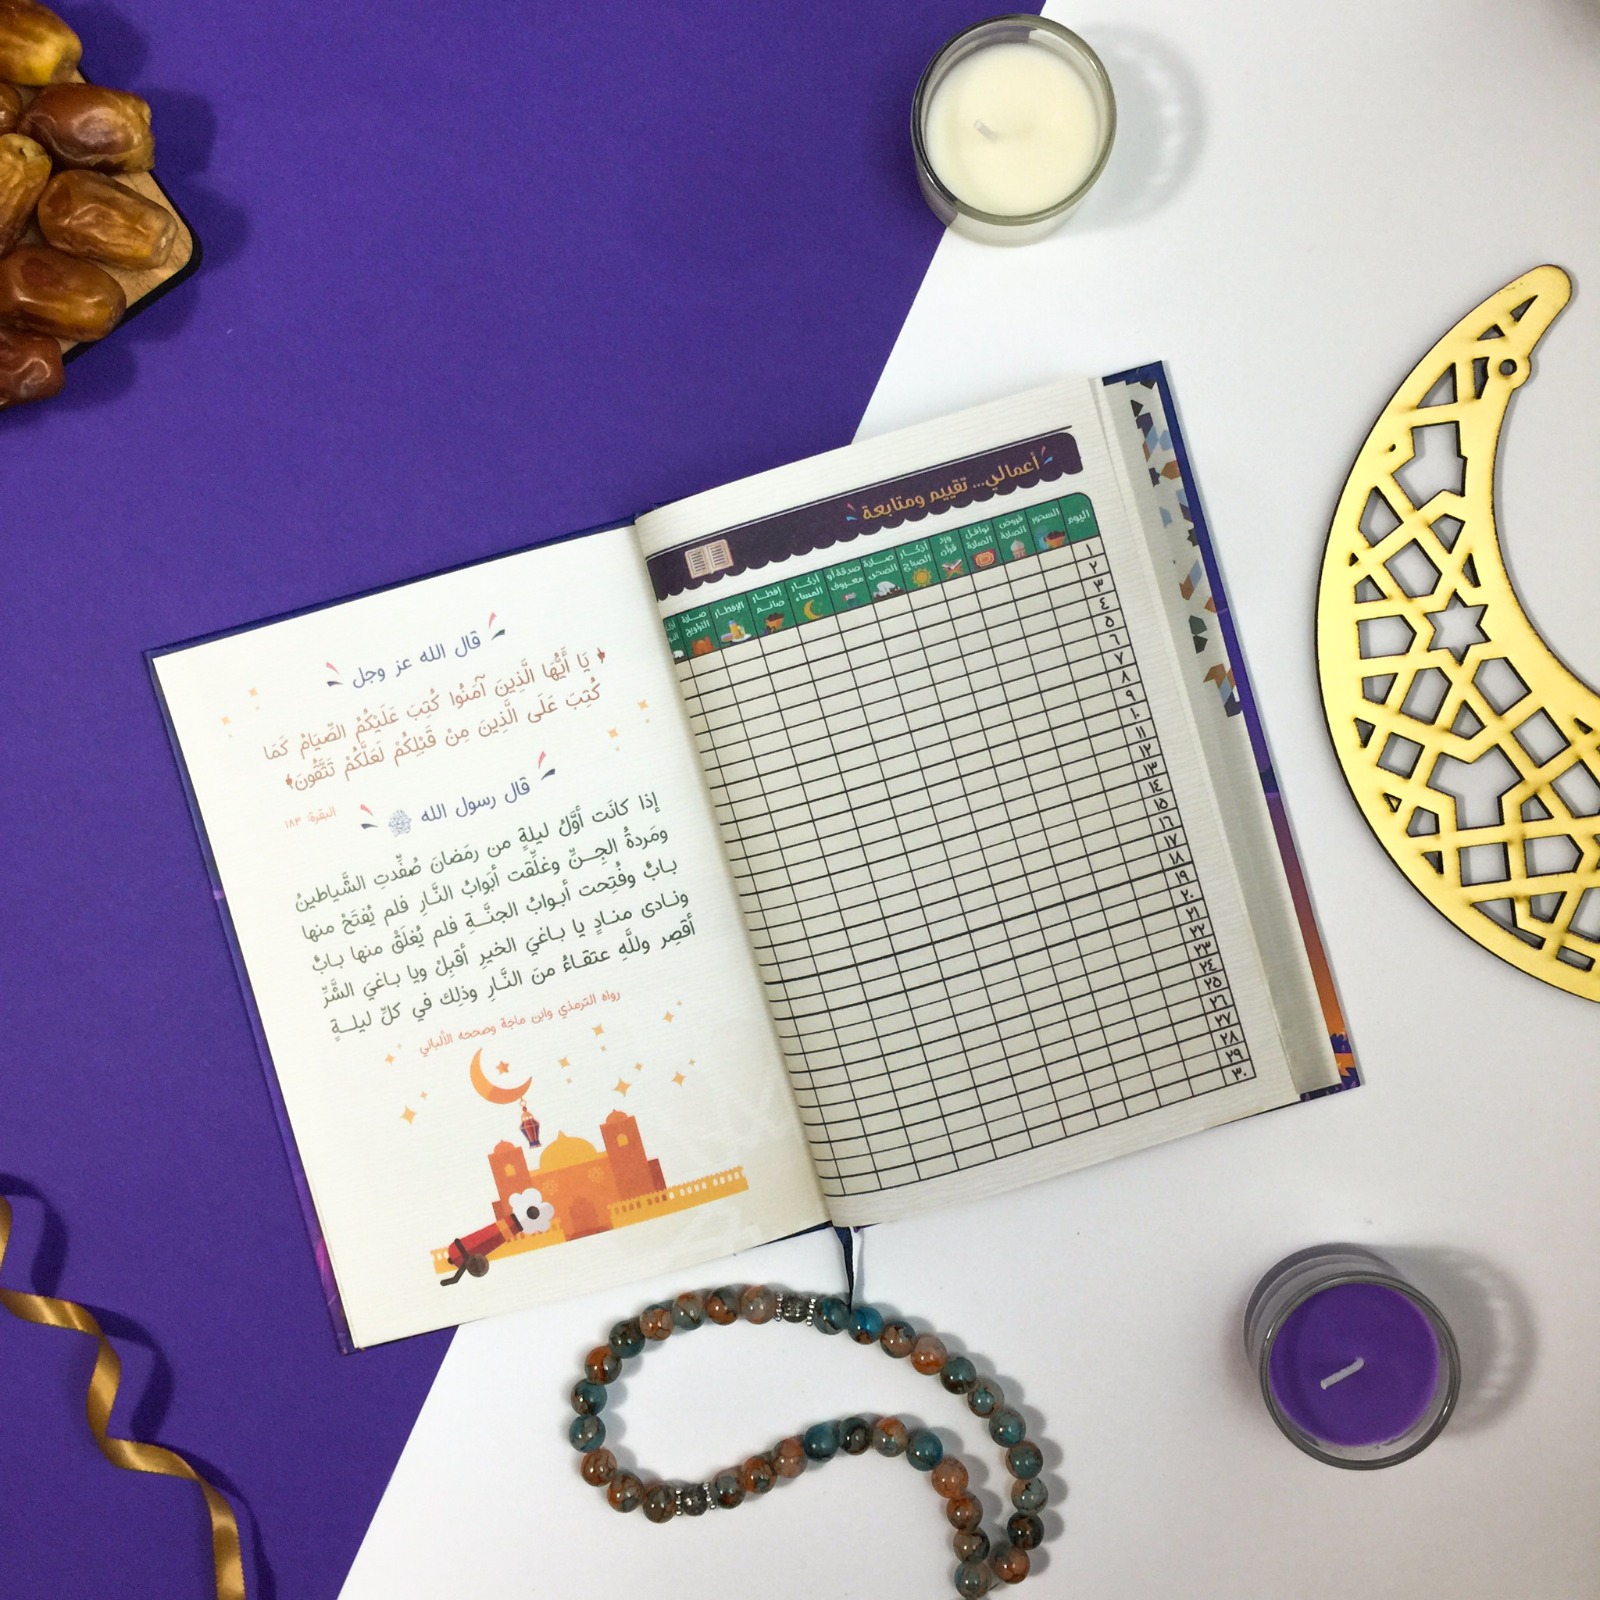 أعمالي... تقييم ومتابعة
اليوم
السحور
فروض الصلاة
نوافل الصلاة
ورد قرآن
أذكار الصباح
صلاة الضحى
صدقة أو معروف
أذكار المساء
إفطار صائم
الإفطار
صلاة التراويح
١
٢
٣
٤
٥
٦
٧
٨
٩
١٠
١١
١٢
١٣
١٤
١٥
١٦
١٧
١٨
١٩
٢٠
٢١
٢٢
٢٣
٢٤
٢٥
٢٦
٢٧
٢٨
٢٩
٣٠
قال الله عز وجل
﴿ يَا أَيُّهَا الَّذِينَ آمَنُوا كُتِبَ عَلَيْكُمُ الصِّيَامُ كَمَا
كُتِبَ عَلَى الَّذِينَ مِنْ قَبْلِكُمْ لَعَلَّكُمْ تَتَّقُونَ﴾
البقرة: ١٨٣
قال رسول الله ﷺ
إذا كانَت أوَّلُ ليلةٍ من رمَضانَ صُفِّدتِ الشَّياطينُ
ومَردةُ الجِنِّ وغلِّقت أبَوابُ النَّارِ فلم يُفتَحْ منها
بابٌ وفُتِحت أبوابُ الجنَّةِ فلم يُغلَقْ منها بابٌ
ونادى منادٍ يا باغيَ الخيرِ أقبِلْ ويا باغيَ الشَّرِّ
أقصِر وللَّهِ عتقاءُ منَ النَّارِ وذلِك في كلِّ ليلةٍ
رواه الترمذي وابن ماجة وصححه الألباني